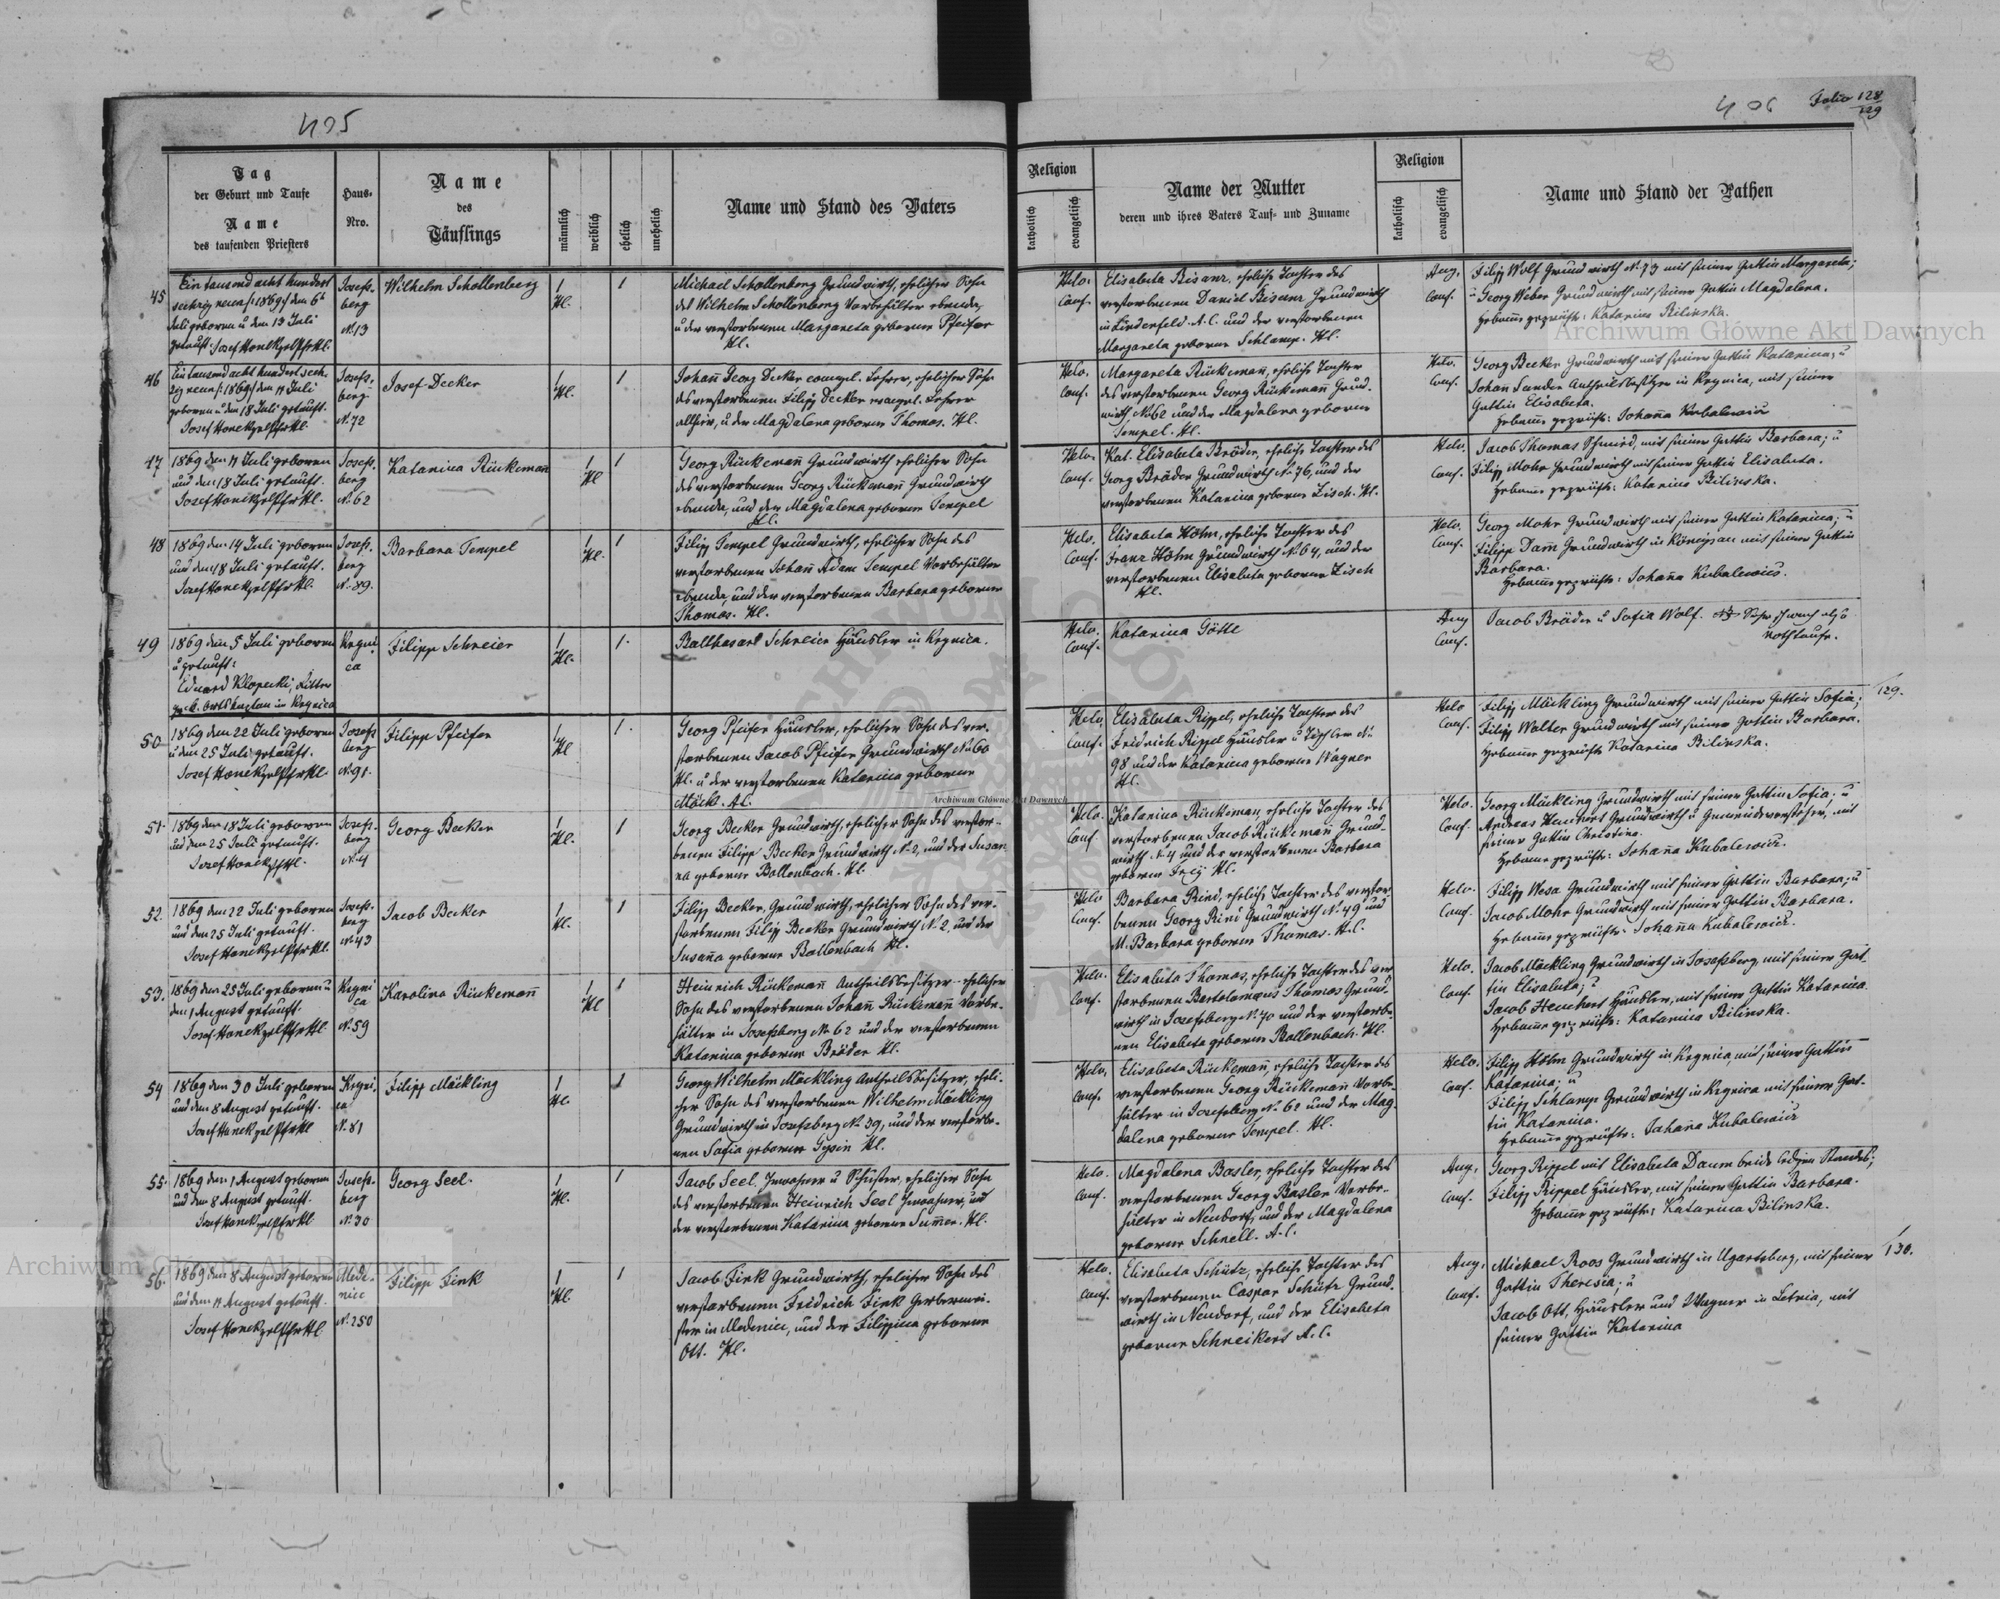 405
406 Folio 128/129
Tag
der Geburt und Taufe
Name
des taufenden Priesters
Haus-
Nro.
Name
des
Täuflings
männlich
weiblich
ehelich
unehelich
Name und Stand des Vaters
Religion
katholisch
evangelisch
Name der Mutter
deren und ihres Vaters Tauf- und Zuname
Religion
katholisch
evangelisch
Name und Stand der Pathen
45
Ein tausend acht hundert
sechzig neun /:1869:/ den 6t
Juli geboren u den 13 Juli
getauft: Josef Hanek
Josefs-
berg
N.13
Wilhelm Schollenberg
1
Hl.
1
Michael Schollenberg Grundwirth, ehelicher Sohn
des Wilhelm Schollenberg Vorbehälter ebenda,
u der verstorbenen Margareta geborne Pfeifer
Hl.
Helv.
Conf.
Elisabeta Bisanz, eheliche Tochter des
verstorbenen Daniel Bisanz Grundwirth
in Lindenfeld A.C. und der verstorbenen
Margareta geborne Schlamp. Hl.
Aug.
Conf.
Filipp Wolf Grundwirth N.73 mit seiner Gattin Margareta;
u Georg Weber Grundwirth mit seiner Gattin Magdalena.
Hebamme geprüfte: Katarina Bilinska.
46
Ein tausend acht hundert sech-
zig neun /:1869:/ den 11 Juli
geboren u den 18 Juli getauft.
Josef Hanek
Josefs-
berg
N.72
Josef Decker
1
Hl.
1
Johann Georg Decker evangel. Lehrer, ehelicher Sohn
des verstorbenen Filipp Decker evangel. Lehrer
allhier, u der Magdalena geborne Thomas. Hl.
Helv.
Conf.
Margareta Rückemann, eheliche Tochter
des verstorbenen Georg Rückemann Grund-
wirth N.62 und der Magdalena geborne
Tempel. Hl.
Helv.
Conf.
Georg Becker Grundwirth mit seiner Gattin Katarina; u
Johann Sander Antheilsbesitzer in Kregnica, mit seiner
Gattin Elisabeta.
Hebamme geprüfte: Johanna Kubalewicz
47
1869 den 11 Juli geboren
und den 18 Juli getauft.
Josef Hanek
Josefs-
berg
N.62
Katarina Rückemann
1
Hl
1
Georg Rückemann Grundwirth ehelicher Sohn
des verstorbenen Georg Rückemann Grundwirth
ebenda, und der Magdalena geborne Tempel
Hl.
Helv.
Conf.
Kat. Elisabeta Bräder, eheliche Tochter des
Georg Bräder Grundwirth N.76, und der
verstorbenen Katarina geborne Zisch. Hl.
Helv.
Conf.
Jacob Thomas Schmied, mit seiner Gattin Barbara; u
Filipp Mohr Grundwirth mit seiner Gattin Elisabeta.
Hebamme geprüfte: Katarina Bilinska.
48
1869 den 14 Juli geboren
und den 18 Juli getauft.
Josef Hanek
Josefs-
berg
N.89.
Barbara Tempel
1
Hl.
1
Filipp Tempel Grundwirth, ehelicher Sohn des
verstorbenen Johann Adam Tempel Vorbehälter
ebenda, und der verstorbenen Barbara geborne
Thomas. Hl.
Helv.
Conf.
Elisabeta Höhn, eheliche Tochter des
Franz Höhn Grundwirth N.64, und der
verstorbenen Elisabeta geborne Zisch
Hl.
Helv.
Conf.
Georg Mohr Grundwirth mit seiner Gattin Katarina; u
Filipp Damm Grundwirth in Königsau mit seiner Gattin
Barbara.
Hebamme geprüfte: Johanna Kubalewicz.
49
1869 den 5 Juli geboren
u getauft:
Eduard Klopecki, Ritter
gr. k. Ortskaplan in Kregnica
Kregni-
ca
Filipp Schreier
1
Hl.
1.
Balthasart Schreier Häusler in Kregnica.
Helv.
Conf.
Katarina Götte
Aug
Conf.
Jacob Bräder u Sofia Wolf. Sehr schwach also
Nothtaufe.
50
1869 den 22 Juli geboren
u den 25 Juli getauft.
Josef Hanek
Josefs-
berg
N.91.
Filipp Pfeifer
1
Hl
1.
Georg Pfeifer Häusler, ehelicher Sohn des ver-
storbenen Jacob Pfeifer Grundwirth N.60
Hl. u der verstorbenen Katarina geborne
Möckl. A.C.
Helv.
Conf.
Elisabeta Rippel, eheliche Tochter des
Fridrich Rippel Häusler u Tischler N.
98 und der Katarina geborne Wagner
Hl.
Helv
Conf.
Filipp Möckling Grundwirth mit seiner Gattin Sofia;
Filipp Walter Grundwirth mit seiner Gattin Barbara.
Hebamme geprüfte Katarina Bilinska.
129.
51.
1869 den 18 Juli geboren
und den 25 Juli getauft.
Josef Hanek
Josefs-
berg
N.4
Georg Becker
1
Hl.
1
Georg Becker Grundwirth, ehelicher Sohn des verstor-
benen Filipp Becker Grundwirth N.2, und der Susan-
na geborne Bollenbach. Hl.
Helv.
Conf.
Katarina Rückemann, eheliche Tochter des
verstorbenen Jacob Rückemann Grund-
wirth N.4 und der verstorbenen Barbara
geborne Freÿ Hl.
Helv.
Conf.
Georg Möckling Grundwirth mit seiner Gattin Sofia. u
Andreas Heuchert Grundwirth u Gemeindevorsteher, mit
seiner Gattin Christina.
Hebamme geprüfte: Johanna Kubalewicz.
52.
1869 den 22 Juli geboren
und den 25 Juli getauft.
Josef Hanek
Josefs-
berg
N.43
Jacob Becker
1
Hl.
1
Filipp Becker, Grundwirth, ehelicher Sohn des ver-
storbenen Filipp Becker Grundwirth N.2, und der
Susanna geborne Bollenbach Hl.
Helv
Conf.
Barbara Rind, eheliche Tochter des verstor-
benen Georg Rind Grundwirth N.49 und
M. Barbara geborne Thomas. H.C.
Helv.
Conf.
Filipp Wesa Grundwirth mit seiner Gattin Barbara; u
Jacob Mohr Grundwirth mit seiner Gattin Barbara.
Hebamme geprüfte: Johanna Kubalewicz.
53.
1869 den 25 Juli geboren u
den 1 August getauft.
Josef Hanek
Kregni
ca
N.59
Karolina Rückemann
1
Hl
1
Heinrich Rückemann Antheilsbesitzer - ehelicher
Sohn des verstorbenen Johann Rückemann Vorbe-
hälter in Josefsberg N. 62 und der verstorbenen
Katarina geborne Bräder Hl.
Helv.
Conf.
Elisabeta Thomas, eheliche Tochter des ver-
storbenen Bartolomäus Thomas Grund-
wirth in Josefsberg N.70 und der verstorbe-
nen Elisabeta geborne Bollenbach. Hl.
Helv.
Conf.
Jacob Möckling Grundwirth in Josefsberg mit seiner Gat-
tin Elisabeta; u
Jacob Heuchert Häusler, mit seiner Gattin Katarina.
Hebamme geprüfte: Katarina Bilinska.
54
1869 den 30 Juli geboren
und den 8 August getauft.
Josef Hanek
Kregni-
ca
N.81
Filipp Möckling
1
Hl.
1
Georg Wilhelm Möckling Antheilsbesitzer, eheli-
cher Sohn des verstorbenen Wilhelm Möckling
Grundwirth in Josefsberg N. 39, und der verstorbe-
nen Sofia geborne Gysin Hl.
Helv.
Conf.
Elisabeta Rückemann, eheliche Tochter des
verstorbenen Georg Rückemann Vorbe-
hälter in Josefsberg N. 62 und der Mag-
dalena geborne Tempel. Hl.
Helv.
Conf.
Filipp Höhn Grundwirth in Kregnica, mit seiner Gattin
Katarina; u
Filipp Schlamp Grundwirth in Kregnica mit seiner Gat-
tin Katarina.
Hebamme geprüfte: Johanna Kubalewicz
55.
1869 den 1 August geboren
und den 8 August getauft.
Josef Hanek
Josefs-
berg
N.30
Georg Seel.
1
Hl.
1
Jacob Seel, Inwohner u Schuster, ehelicher Sohn
des verstorbenen Heinrich Seel Inwohner, und
der verstorbenen Katarina geborne Summer. Hl.
Helv.
Conf.
Magdalena Basler, eheliche Tochter des
verstorbenen Georg Basler Vorbe-
hälter in Neudorf, und der Magdalena
geborne Schnell. A.C.
Aug.
Conf.
Georg Rippel mit Elisabeta Daum beide ledigen Standes;
Filipp Rippel Häusler, mit seiner Gattin Barbara.
Hebamme geprüfte: Katarina Bilinska.
56.
1869 den 8 August geboren
und den 11 August getauft.
Josef Hanek
Mede-
nice
N.250
Filipp Fink
1
Hl.
1
Jacob Fink Grundwirth, ehelicher Sohn des
verstorbenen Fridrich Fink Gerbermei-
ster in Medenice, und der Filippina geborne
Ott. Hl.
Helv.
Conf.
Elisabeta Schütz, eheliche Tochter des
verstorbenen Caspar Schütz Grund-
wirth in Neudorf, und der Elisabeta
geborne Schneikert A.C.
Aug.
Conf.
Michael Roos Grundwirth in Ugartsberg, mit seiner
Gattin Theresia; u
Jacob Ott, Häusler und Wagner in Letnia, mit
seiner Gattin Katarina
130.
Archiwum Główne Akt Dawnych
Archiwum Główne Akt Dawnych
Archiwum Główne Akt Dawnych